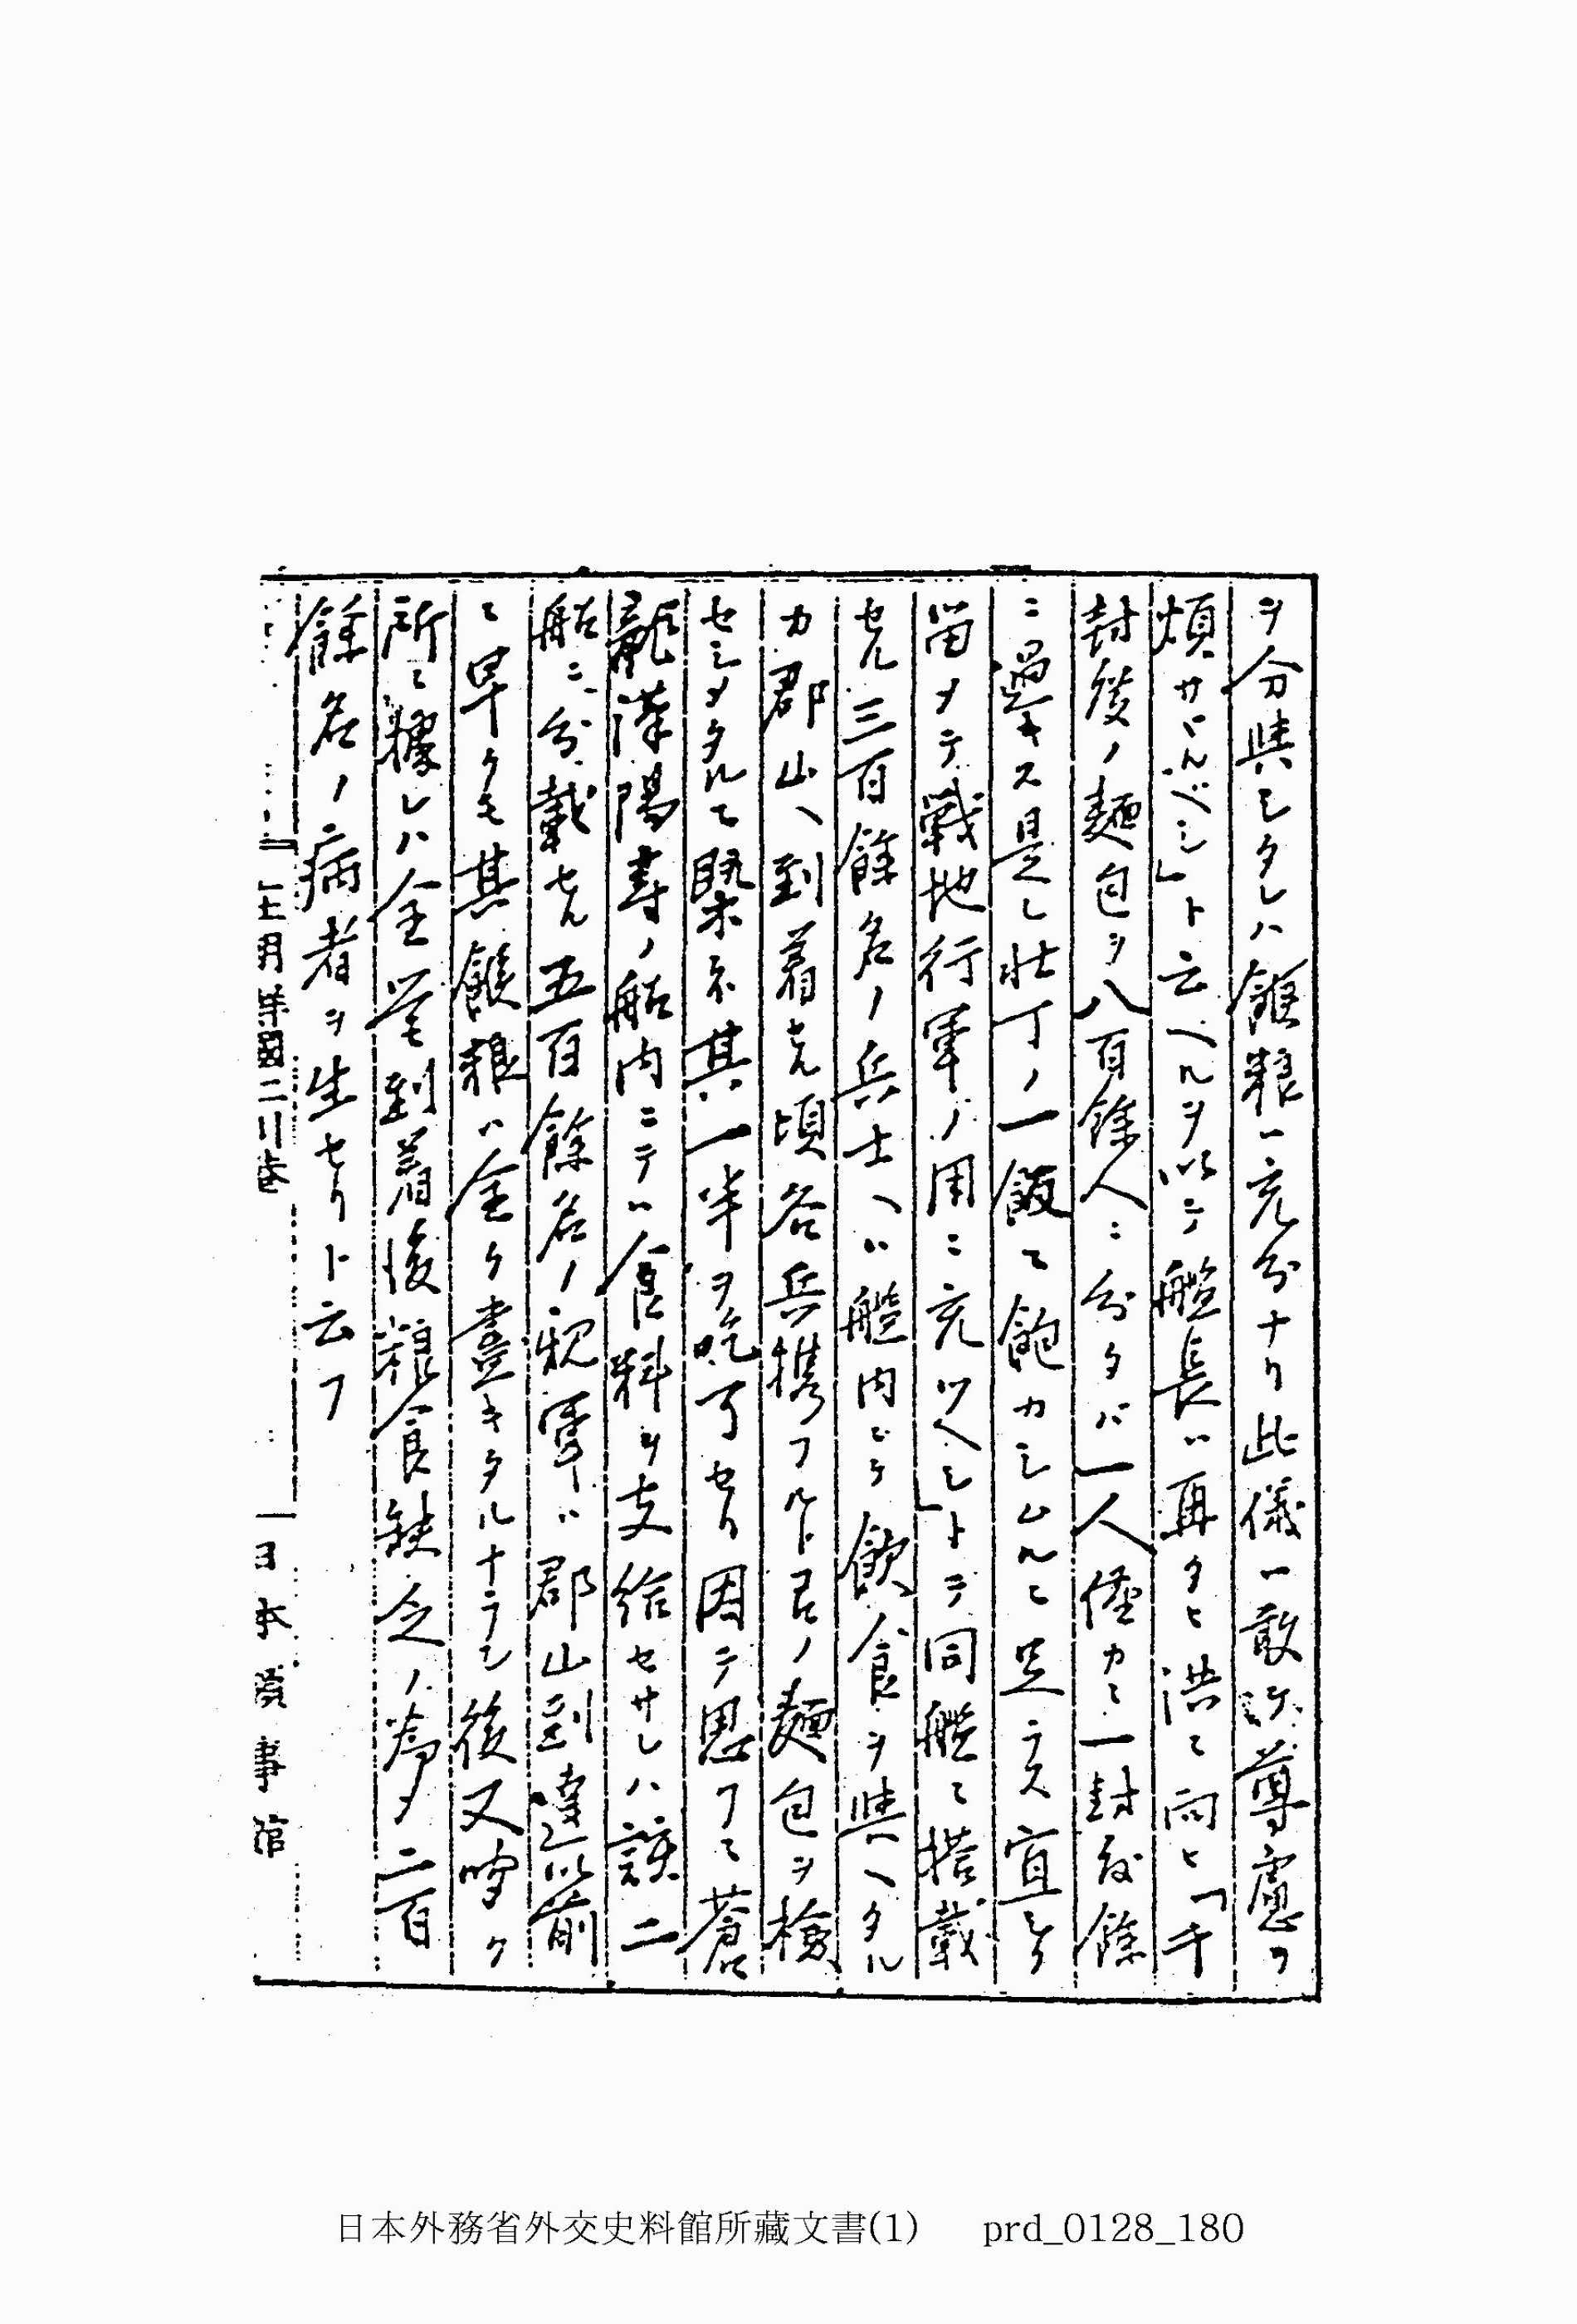 ヲ分与シタレハ餱粮ハ充分ナリ此儀ハ敢テ尊慮ヲ
煩サヾルベシ」ト云ヘルヲ以テ艦長ハ再タヒ洪ニ向ヒ「千
封度ノ麺包ヲ八百餘人ニ分タバ一人僅カニ一封度餘
ニ過キス是レ壮丁ノ一飯ニ飽カシムルニ足ラス宜シク
留メテ戦地行軍ノ用ニ充ツヘシ」トテ同艦ニ搭載
セル三百餘名ノ兵士ヘハ艦内ニテ飲食ヲ與ヘタル
カ郡山ヘ到着セル頃各兵携フル所ノ麺包ヲ検
セシメタルニ槩子其一半ヲ吃了セリ因テ思フニ蒼
龍漢陽寿ノ船内ニテハ食料ヲ支給セサレハ該二
船ニ分載セル五百餘名ノ親軍ハ郡山到達以前
ニ早クモ其餱粮ハ全ク盡キタルナラン後又聞ク
所ニ據レハ全営到着後粮食缺乏ノ為メ二百
餘名ノ病者ヲ生セリト云フ
日本領事館
日本外務省外交史料館所藏文書(1) prd_0128_180